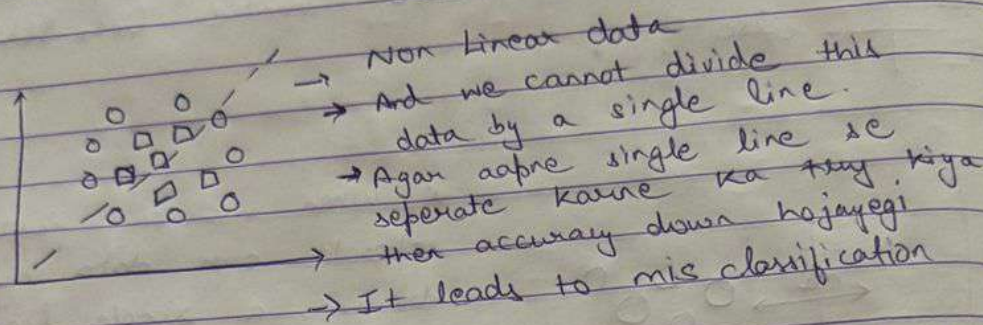 → Non Linear data
→ And we cannot divide this
data by a single line.
→ Agar aapne single line se
seperate karne ka try kiya
then accuracy down hojayegi
→ It leads to mis classification